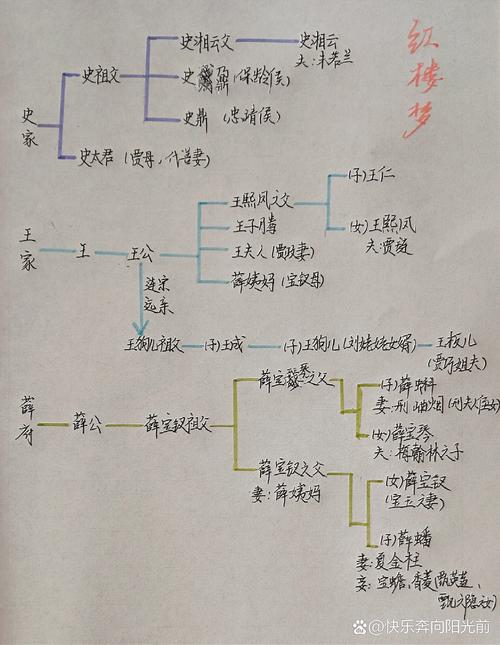 红楼梦
史家
史祖父
史湘云父
史湘云
夫:卫若兰
史鼐(保龄侯)
史鼎(忠靖侯)
史太君(贾母,代善妻)
王家
王
王公
王熙凤之父
(子)王仁
(女)王熙凤
夫:贾琏
王子腾
王夫人(贾政妻)
薛姨妈(宝钗母)
连宗
远亲
王狗儿祖父
(子)王成
(子)王狗儿(刘姥姥女婿)
王板儿
(贾巧姐夫)
薛府
薛公
薛宝钗祖父
薛宝琴之父
(子)薛蝌
妻:邢岫烟(刑夫人侄女)
(女)薛宝琴
夫:梅翰林之子
薛宝钗之父
妻:薛姨妈
(女)薛宝钗
(宝玉之妻)
(子)薛蟠
妻:夏金桂
妾:宝蟾,香菱(甄英莲,
甄士隐女)
百家号@快乐奔向阳光前